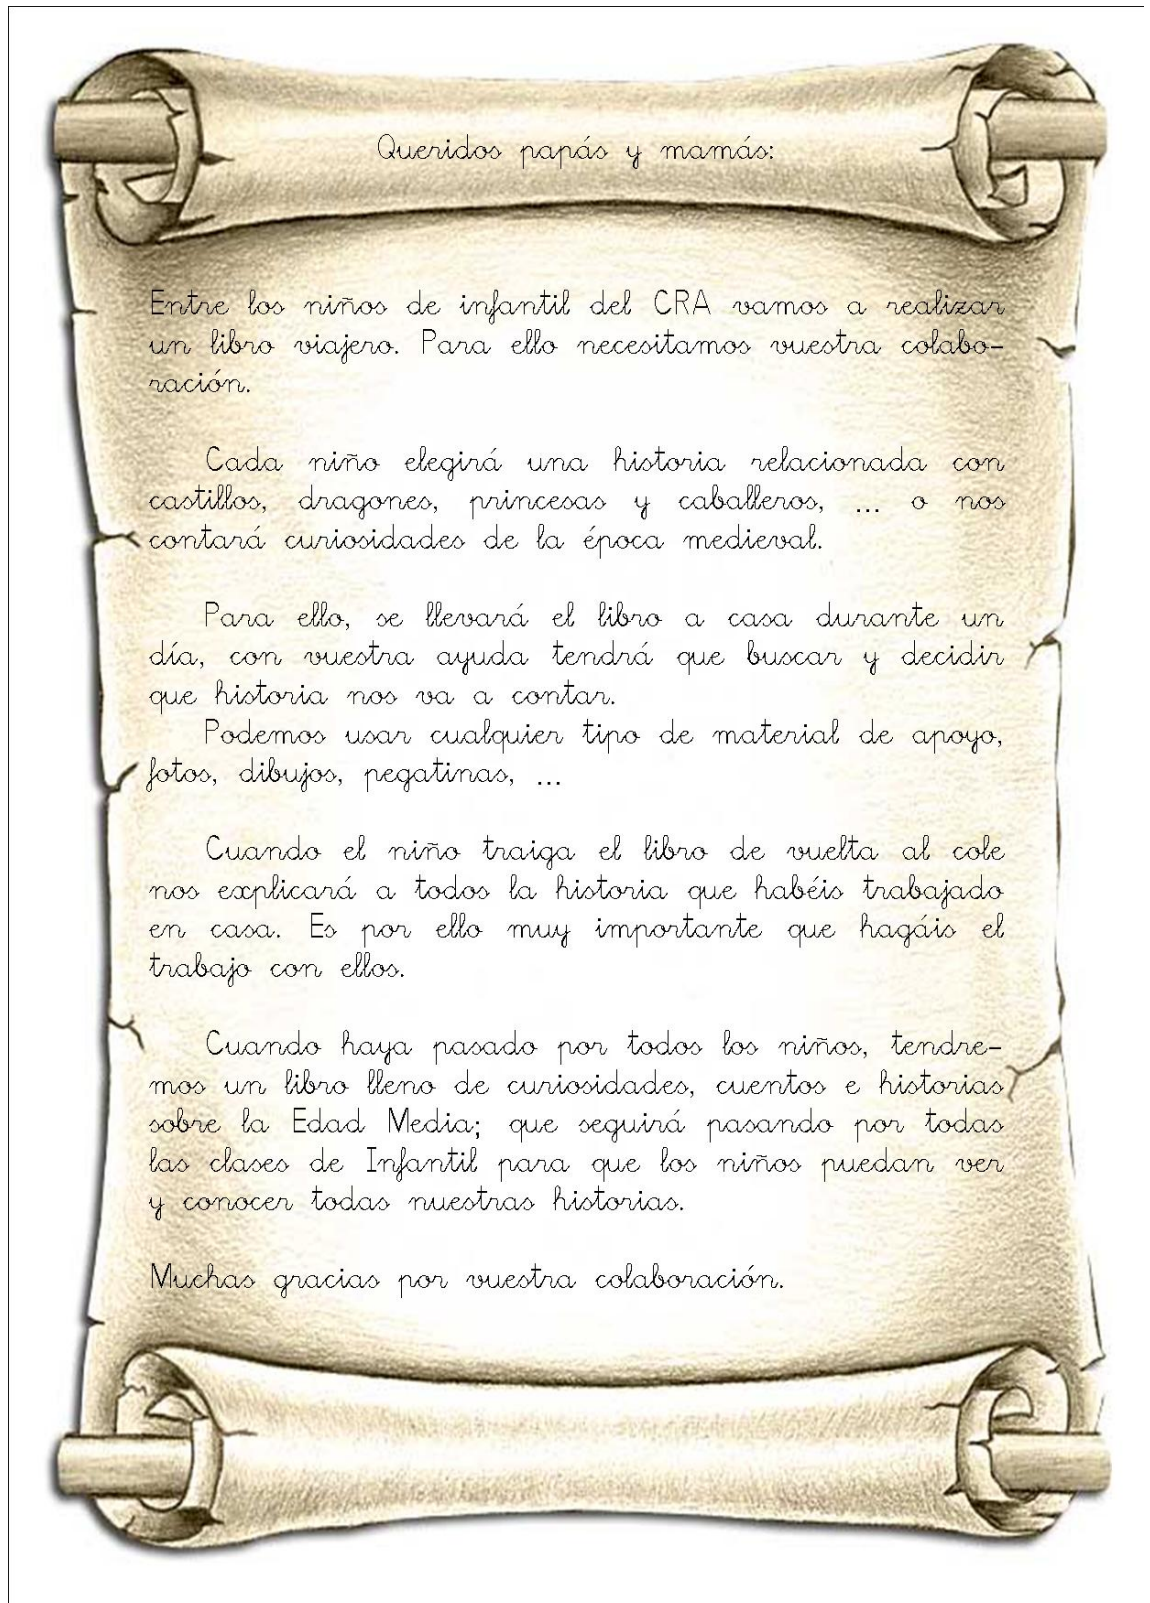 Queridos papás y mamás:
Entre los niños de infantil del CRA vamos a realizar
un libro viajero. Para ello necesitamos vuestra colabo-
ración.
Cada niño elegirá una historia relacionada con
castillos, dragones, princesas y caballeros, ... o nos
contará curiosidades de la época medieval.
Para ello, se llevará el libro a casa durante un
día, con vuestra ayuda tendrá que buscar y decidir
que historia nos va a contar.
Podemos usar cualquier tipo de material de apoyo,
fotos, dibujos, pegatinas, ...
Cuando el niño traiga el libro de vuelta al cole
nos explicará a todos la historia que habéis trabajado
en casa. Es por ello muy importante que hagáis el
trabajo con ellos.
Cuando haya pasado por todos los niños, tendre-
mos un libro lleno de curiosidades, cuentos e historias
sobre la Edad Media; que seguirá pasando por todas
las clases de Infantil para que los niños puedan ver
y conocer todas nuestras historias.
Muchas gracias por vuestra colaboración.